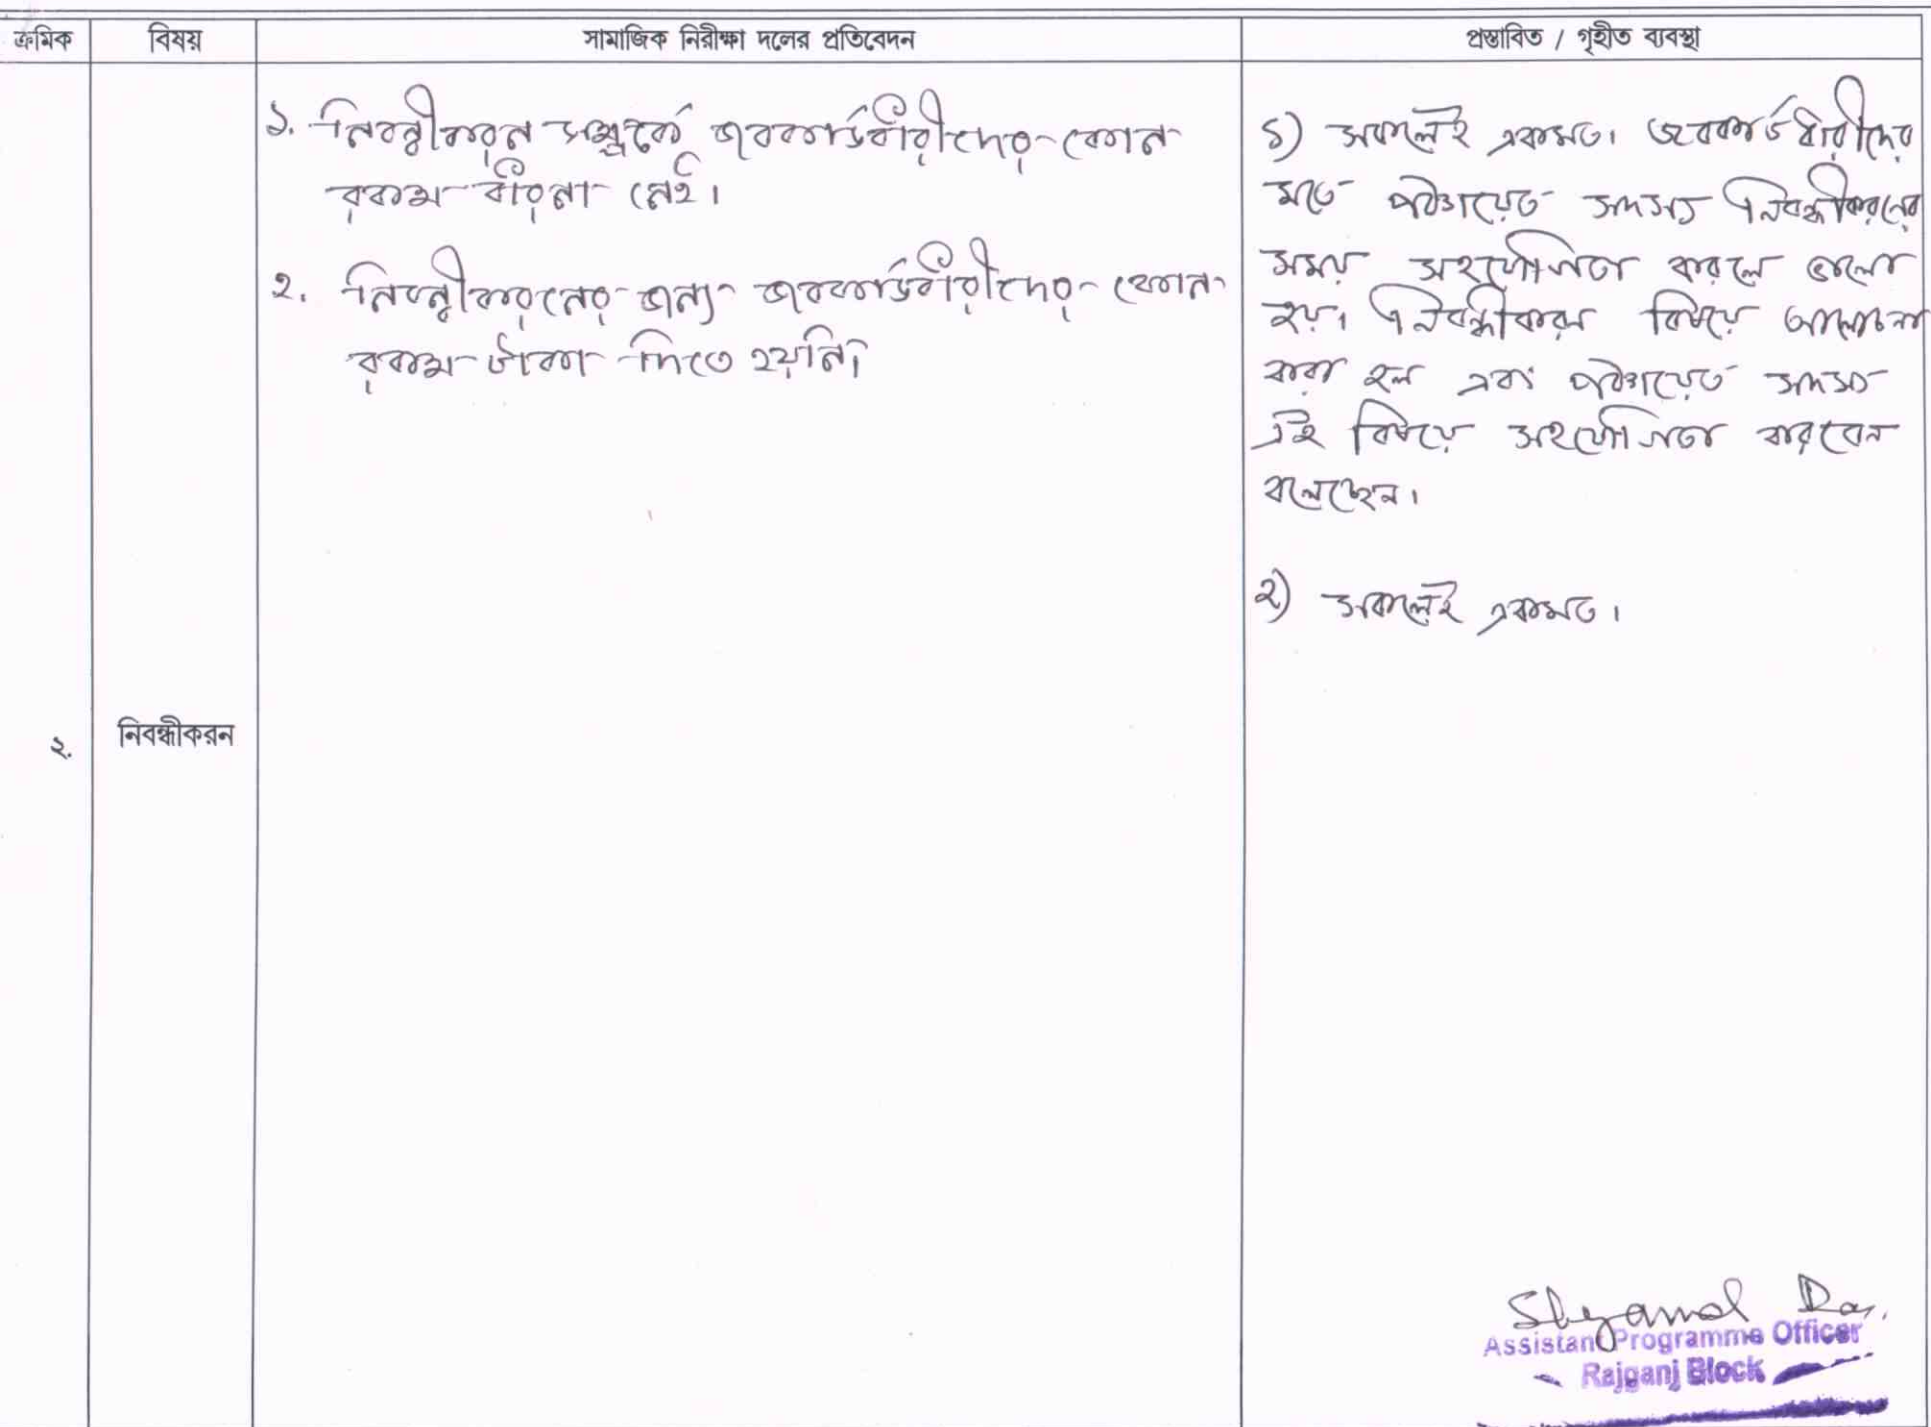 ক্রমিক বিষয় সামাজিক নিরীক্ষা দলের প্রতিবেদন প্রস্তাবিত / গৃহীত ব্যবস্থা
১. নিবন্ধীকরন সম্পর্কে জবকার্ডধারীদের কোন
রকম ধারনা নেই।
২. নিবন্ধীকরনের জন্য জবকার্ডধারীদের কোন
রকম টাকা দিতে হয়নি।
১) সকলেই একমত। জবকার্ড ধারীদের
মতে পঞ্চায়েত সদস্য নিবন্ধীকরনের
সময় সহযোগিতা করলে ভালো
হয়। নিবন্ধীকরন বিষয়ে আলোচনা
করা হল এবং পঞ্চায়েত সদস্য
এই বিষয়ে সহযোগিতা করবেন
বলেছেন।
২) সকলেই একমত।
২. নিবন্ধীকরন
Shyamal
Assistant Programme Officer
Rajganj Block